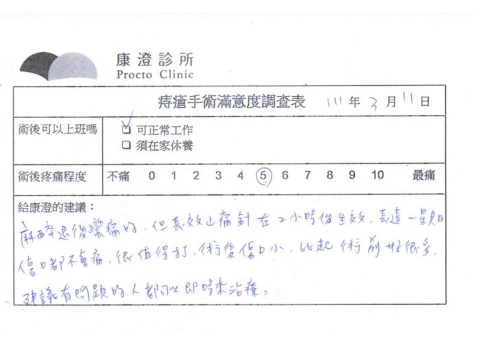 康澄診所
Procto Clinic
痔瘡手術滿意度調查表 111 年 3 月 11 日
術後可以上班嗎 ☑ 可正常工作
☐ 須在家休養
術後疼痛程度 不痛 0 1 2 3 4 5 6 7 8 9 10 最痛
給康澄的建議：
麻醉退後蠻痛的，但長效止痛針在2小時後生效，長達一星期
傷口都不會痛，很值得打，術後傷口小，比起術前好很多，
建議有問題的人都可以即時來治療。